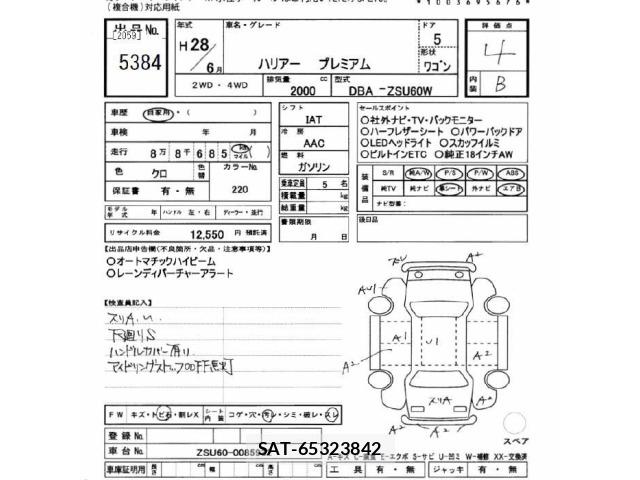 (複合機)対応用紙
*1003695676*
出品No.
[2059]
5384
年式
H28
6月
車名・グレード
ハリアー プレミアム
ドア
5
形状
ワゴン
評価点
4
内装
B
2WD・4WD
排気量
2000 cc
型式
DBA -ZSU60W
車歴 自家用・( )
車検 年 月
走行 8万 8千 6 8 5 km マイル
色 クロ
色替
カラーNo.
220
保証書 有・無
モデル年式 年
ハンドル 左・右
ディーラー・並行
リサイクル料金 12,550 円 預託済
シフト
IAT
冷房
AAC
燃料
ガソリン
乗車定員 5 名
積載量 kg
総重量 kg
書類期限
月 日
セールスポイント
○社外ナビ・TV・バックモニター
○ハーフレザーシート ○パワーバックドア
○LEDヘッドライト ○スカッフイルミ
○ビルトインETC ○純正18インチAW
装備品
S/R 純A/W P/S P/W ABS
純TV 純ナビ 革シート 外ナビ エアB
ナビ型番:
後日品
【出品店申告欄(不良箇所・欠品・注意事項等)】
○オートマチックハイビーム
○レーンディパーチャーアラート
【検査員記入】
スリA.U.
下廻りS
ハンドルカバー有り
FW キズ・トビ石・割レX
シート内装 コゲ・穴・汚レ・シミ・破レ・スレ
登録No.
車台No. ZSU60-00859
SAT-65323842
車庫証明用 長さ cm 幅 cm 高さ
A1
A2
U1
A2
A2
スリA
A2
A2
スペア
A-キズ E-エクボ S-サビ U-凹ミ W-補修 XX-交換済
工具 有・無 ジャッキ 有・無